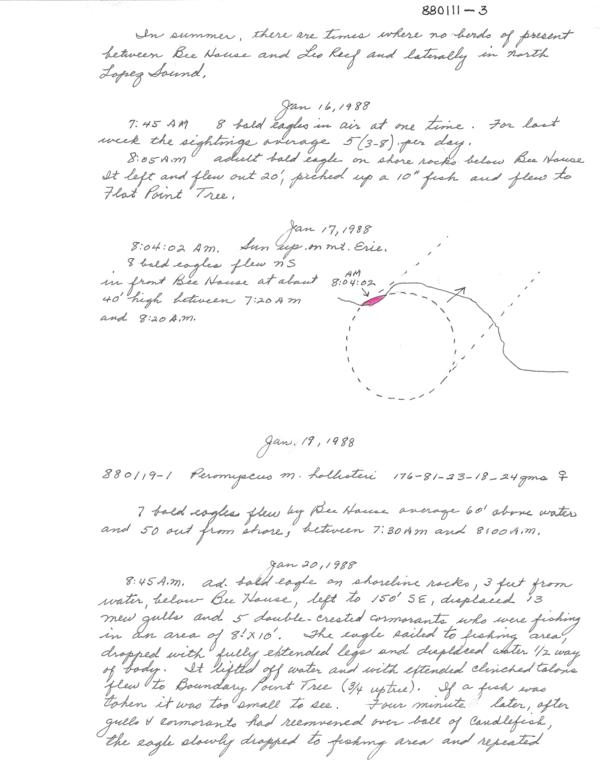 880111-3
In summer, there are times where no birds of present
between Bee House and Leo Reef and laterally in north
Lopez Sound.
Jan 16, 1988
7:45 AM 8 bald eagles in air at one time. For last
week the sightings average 5 (3-8) per day.
8:05 A.M adult bald eagle on shore rocks below Bee House
It left and flew out 20', picked up a 10" fish and flew to
Flat Point Tree.
Jan 17, 1988
8:04:02 AM. Sun up on mt. Erie.
8 bald eagles flew NS
in front Bee House at about
40' high between 7:20 AM
and 8:20 A.M.
AM
8:04:02
Jan. 19, 1988
880119-1 Peromyscus m. hollisteri 176-81-23-18-24 gms ♀
7 bald eagles flew by Bee House average 60' above water
and 50 out from shore, between 7:30 AM and 8:00 A.M.
Jan 20, 1988
8:45 A.M. ad. bald eagle on shoreline rocks, 3 feet from
water, below Bee House, left to 150' SE, displaced 13
mew gulls and 5 double-crested cormorants who were fishing
in an area of 8' X 10'. The eagle sailed to fishing area,
dropped with fully extended legs and displaced water 1/2 way
of body. It lifted off water and with eftended clinched talons
flew to Boundary Point Tree (3/4 uptree). If a fish was
taken it was too small to see. Four minute later, after
gulls & cormorants had reemvened over ball of Candlefish,
the eagle slowly dropped to fishing area and repeated